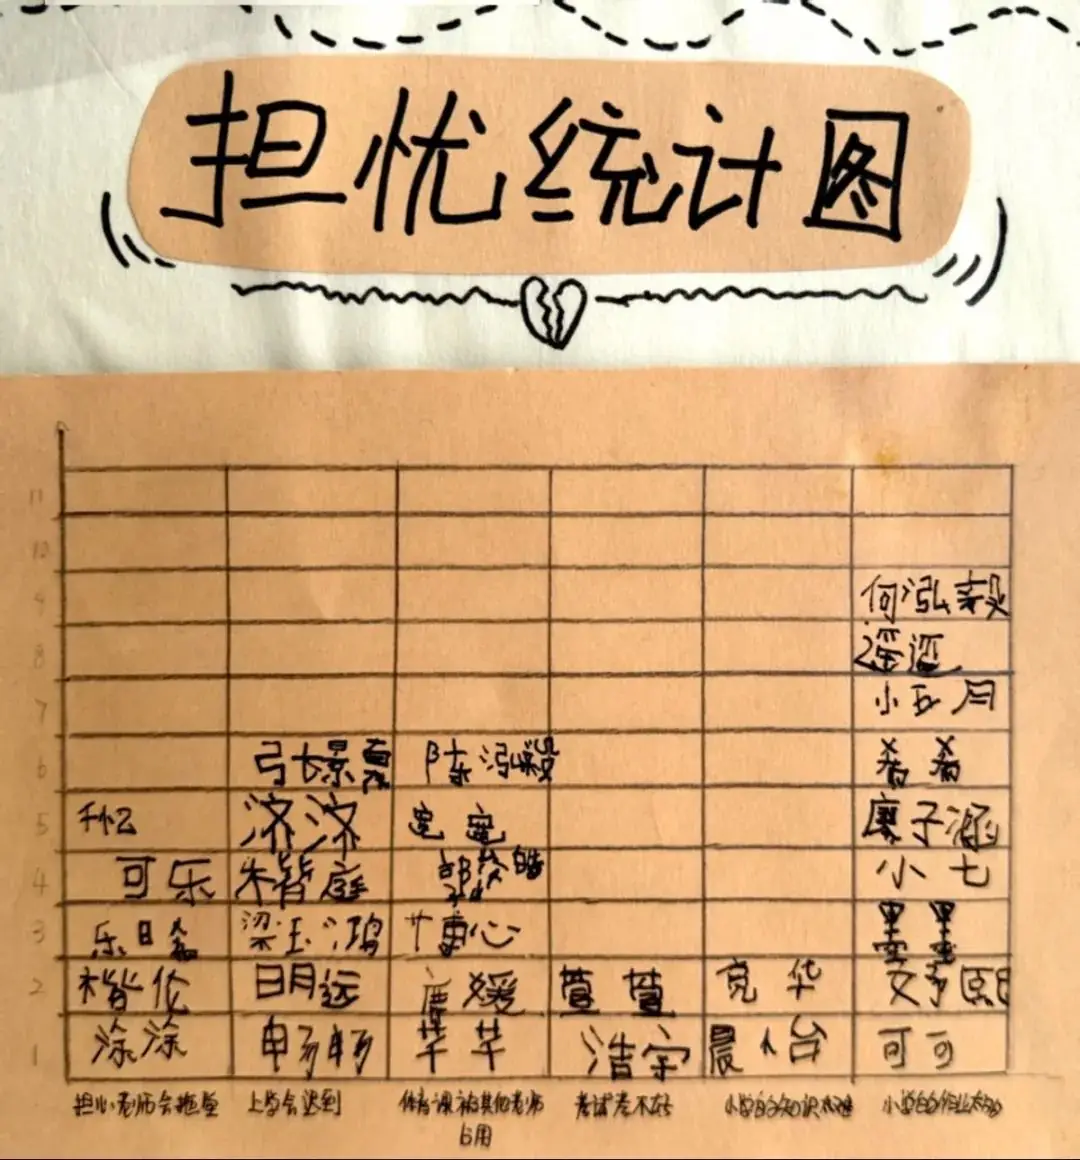 担忧统计图
11
10
9 何泓毅
8 遥遥
7 小玥
6 弓长景 陈泓毅 希希
5 千忆 济济 宽宽 廉子涵
4 可乐 朱皆庭 郭 皓 小七
3 乐日 梁玉鸿 博心 墨墨
2 楷伦 明远 唐媛 萱萱 亮华 文予熙
1 涂涂 畅畅 芊芊 浩宇 晨怡 可可
担心老师会拖堂 上学会迟到 体育课被其他老师 考试考不好 小学的知识太难 小学的作业太多
占用